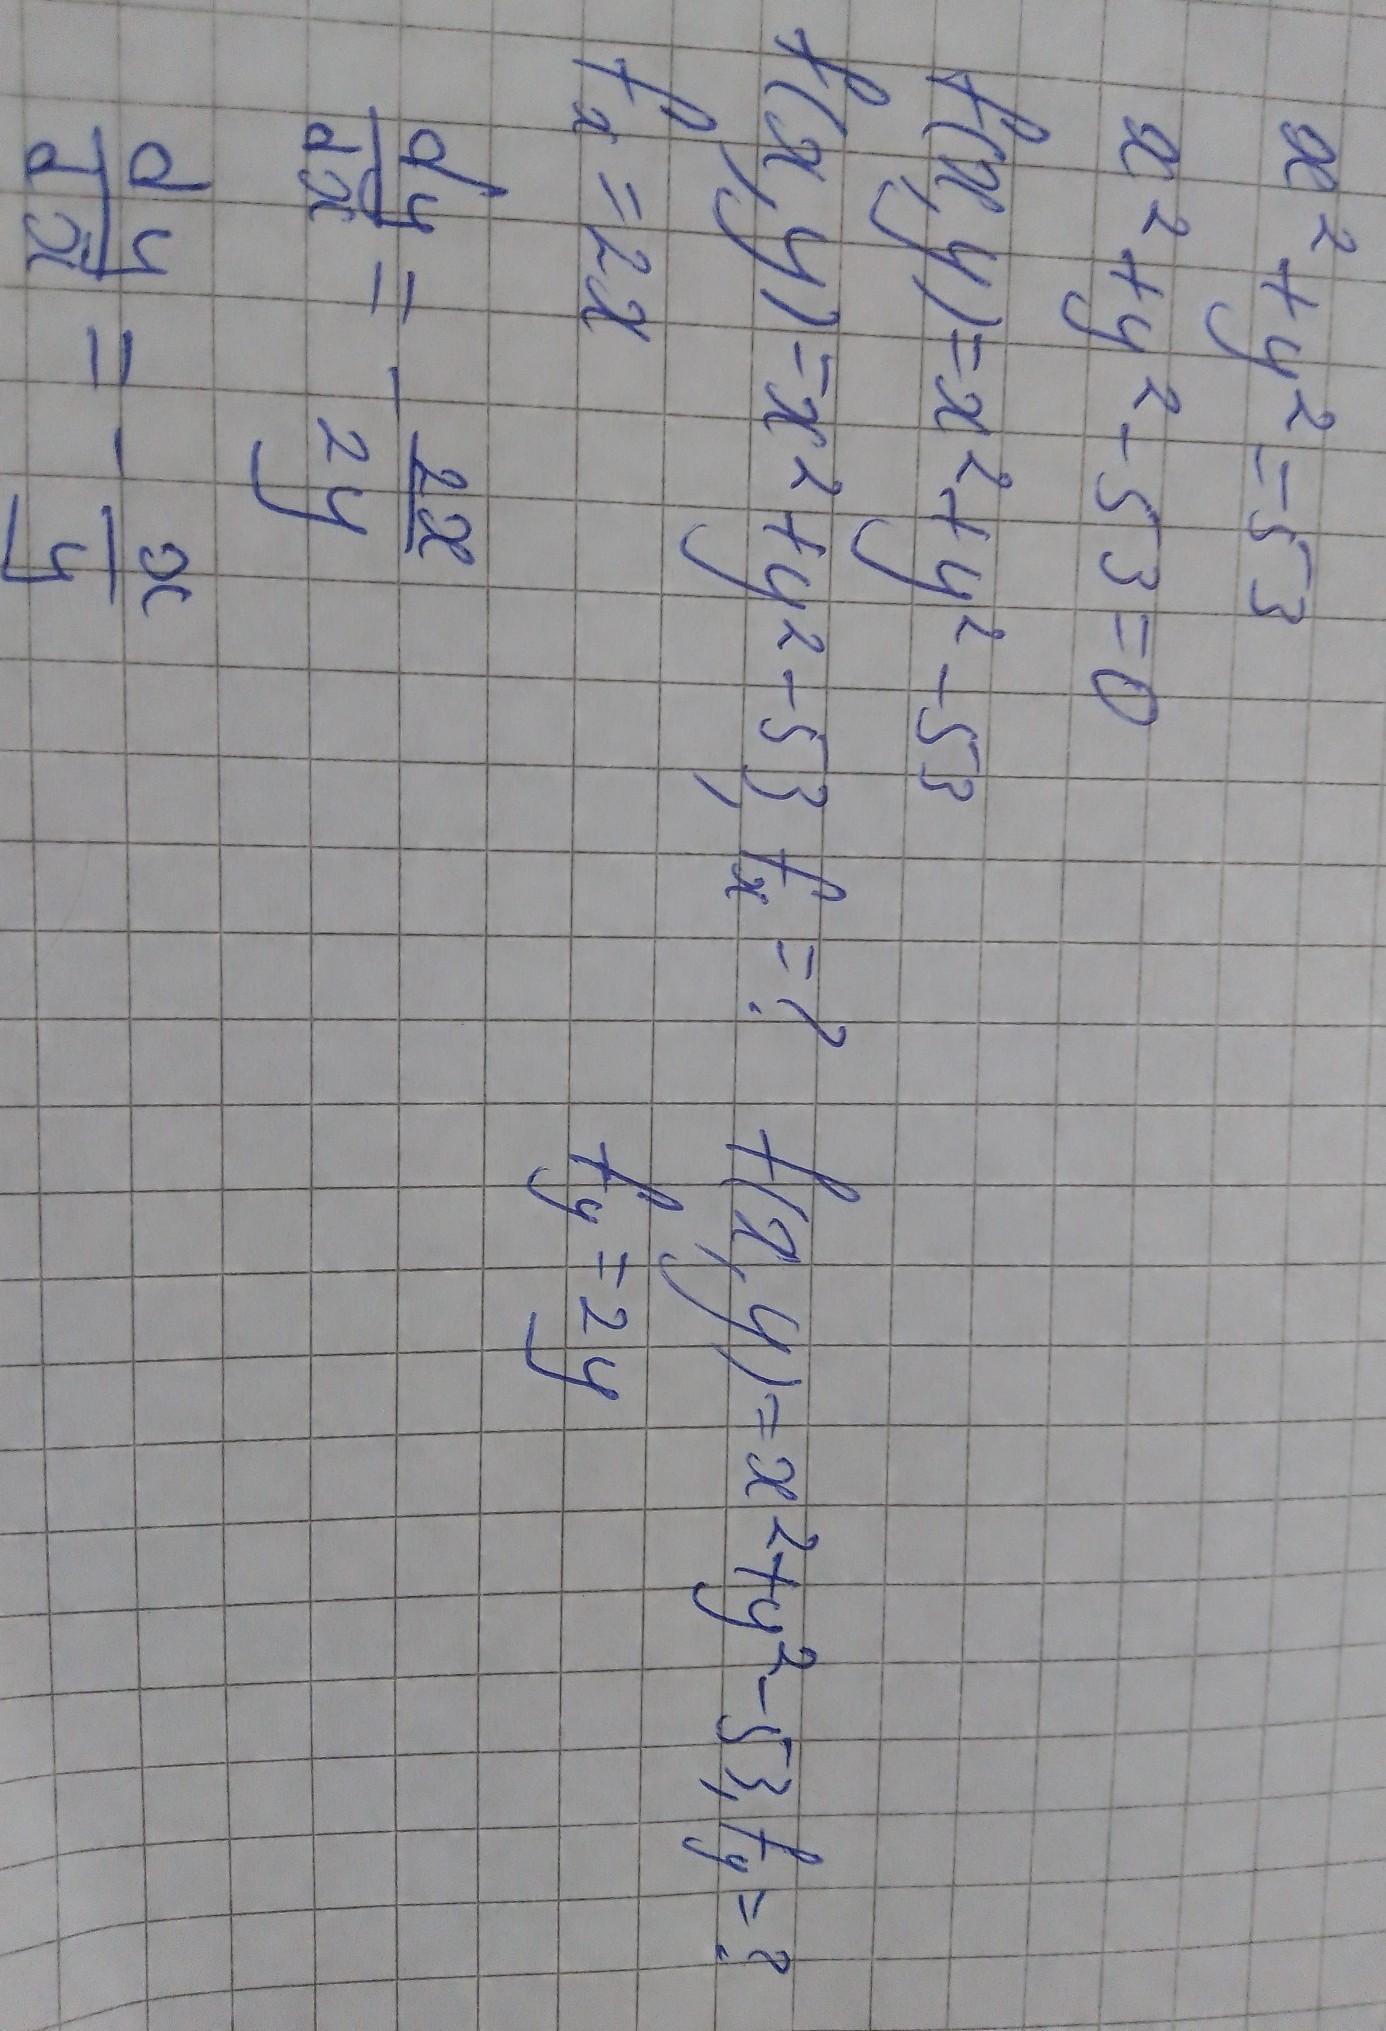 x² + y² = 53
x² + y² - 53 = 0
f(x, y) = x² + y² - 53
f(x, y) = x² + y² - 53, fₓ = ? f(x, y) = x² + y² - 53, f_y = ?
fₓ = 2x f_y = 2y
dy/dx = - 2x/2y
dy/dx = - x/y